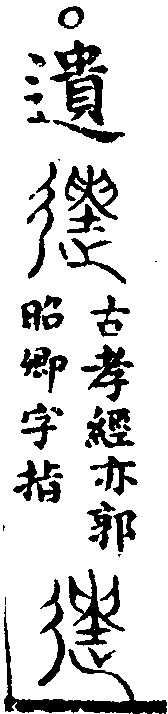 遺
古孝經亦郭
昭卿字指